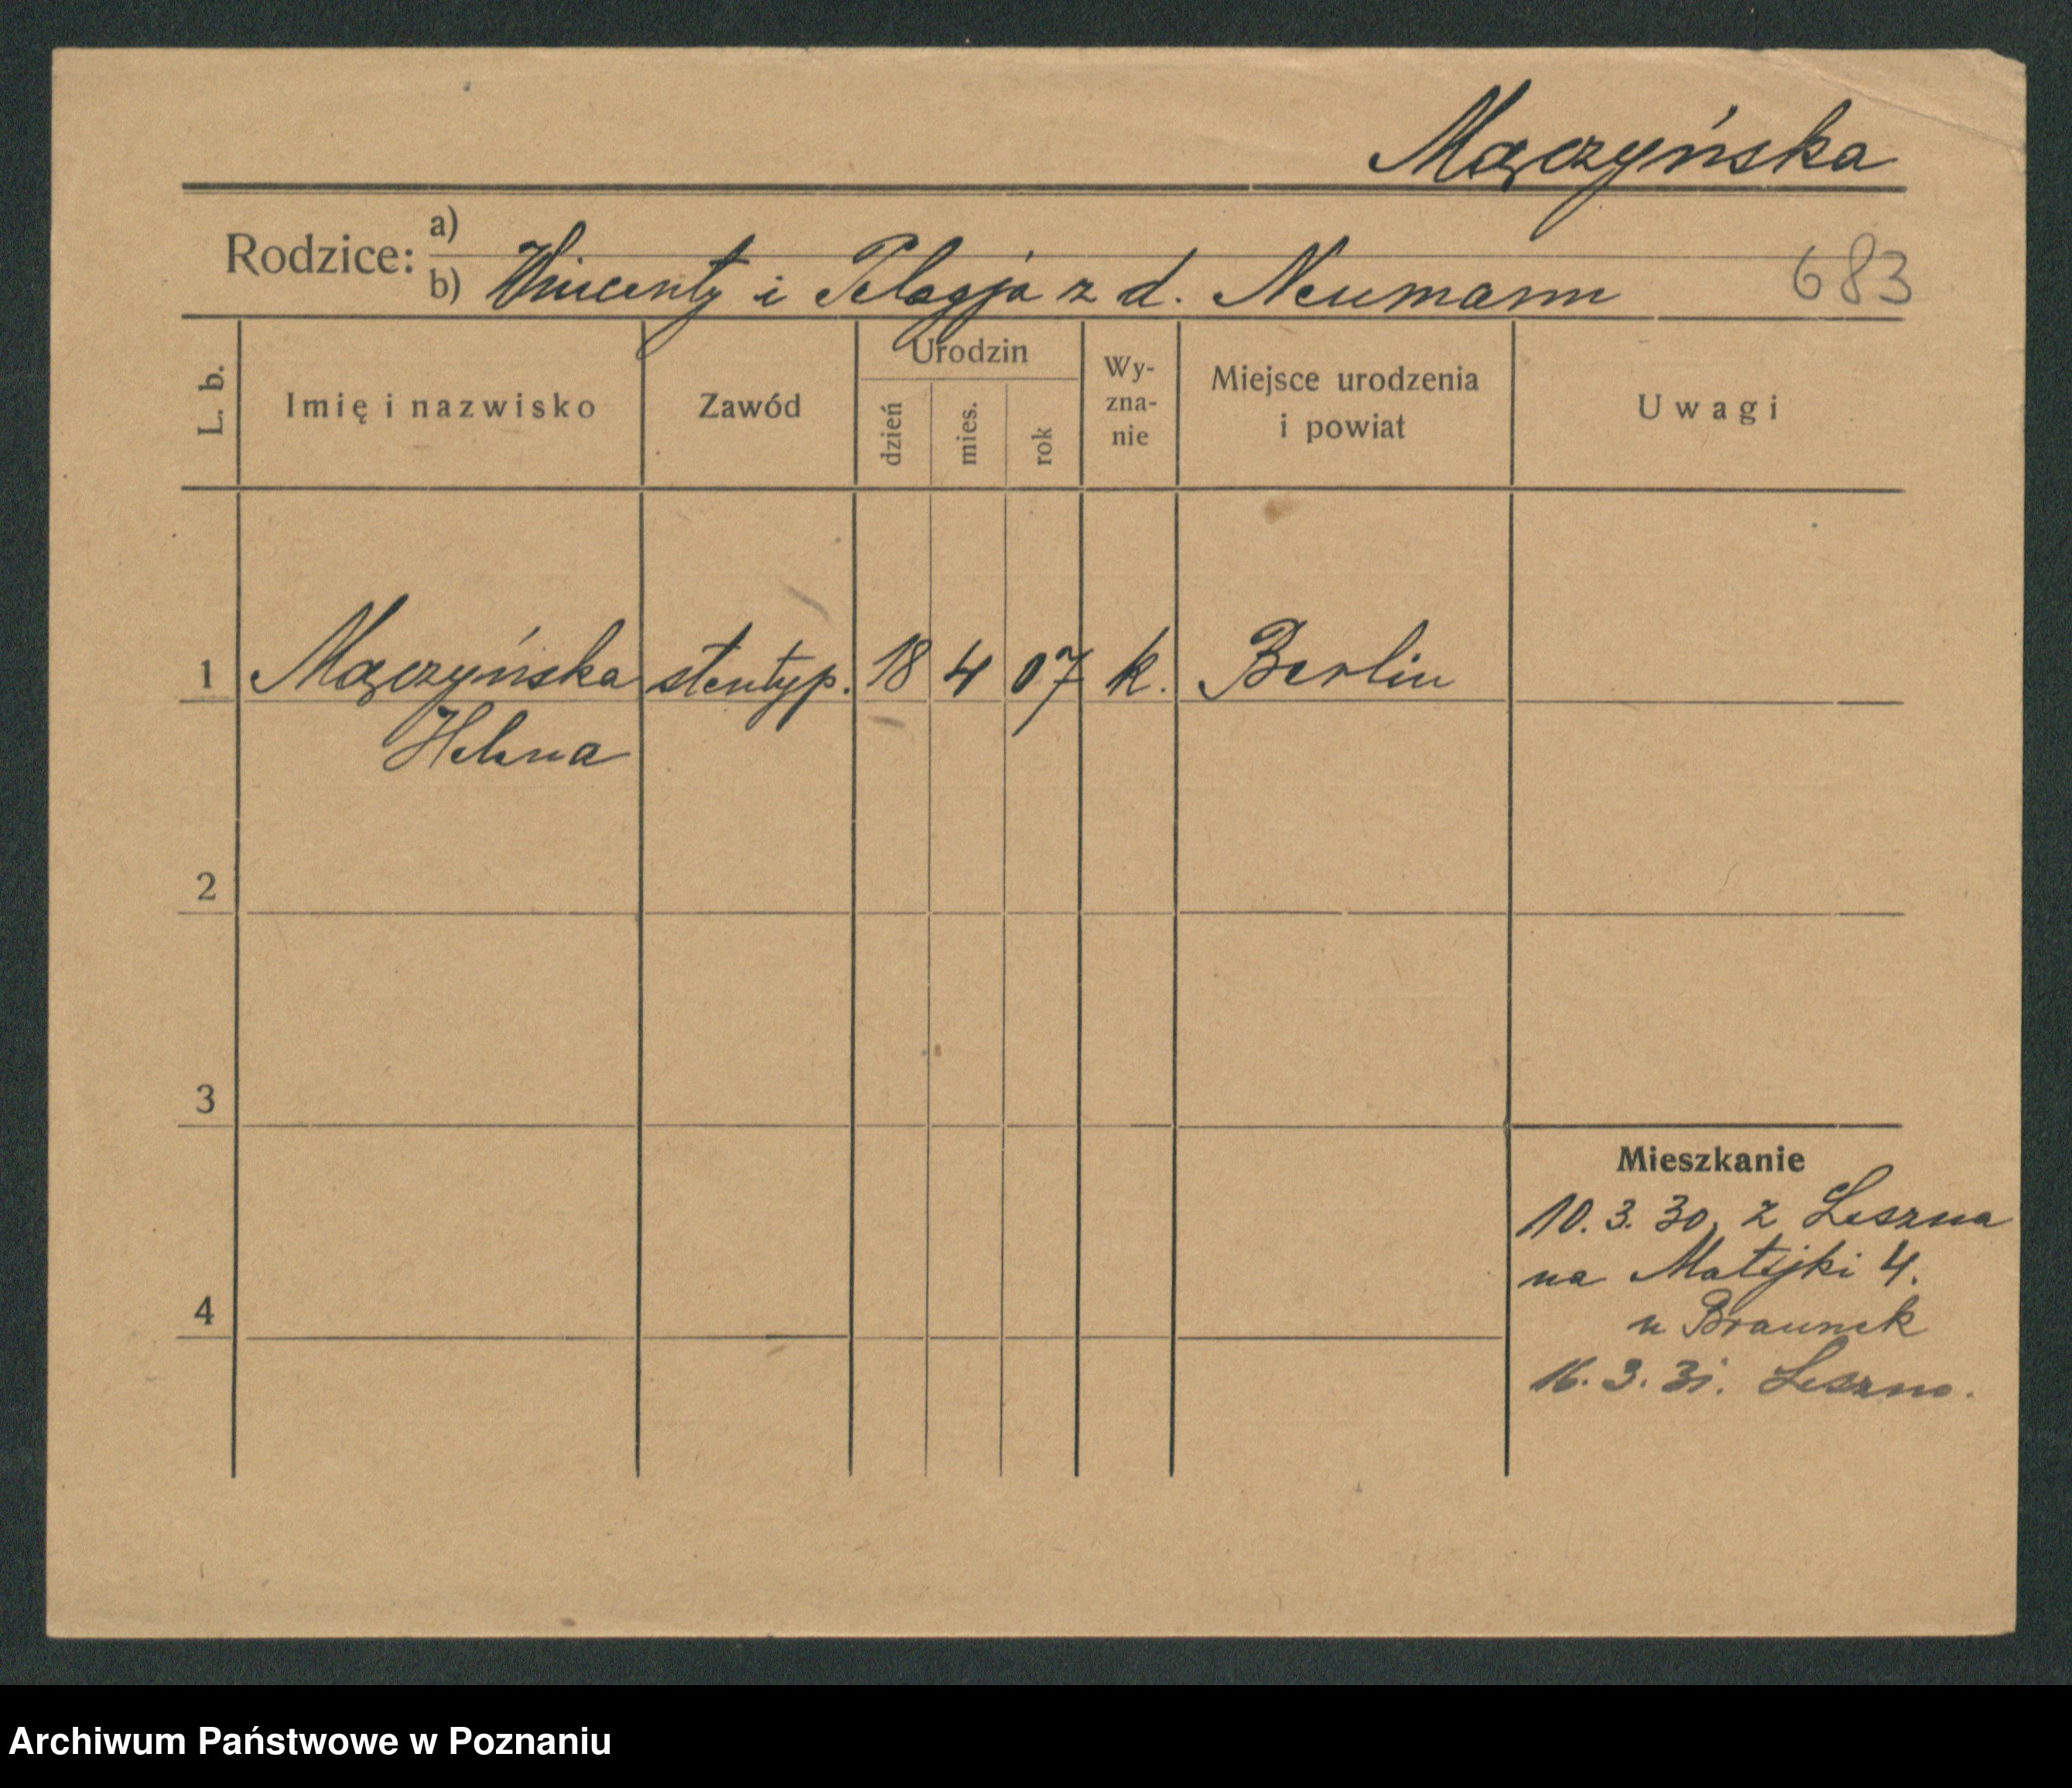 Mączyńska
Rodzice: a)
b) Wincenty i Pelagja z d. Neumann
683
L. b.
Imię i nazwisko
Zawód
Urodzin
dzień
mies.
rok
Wy-
zna-
nie
Miejsce urodzenia
i powiat
Uwagi
1 Mączyńska stentyp. 18 4 07 k. Berlin
Helena
2
3
4
Mieszkanie
10.3.30, z Leszna
na Matejki 4.
u Braunek
16.3.31. Leszno.
Archiwum Państwowe w Poznaniu